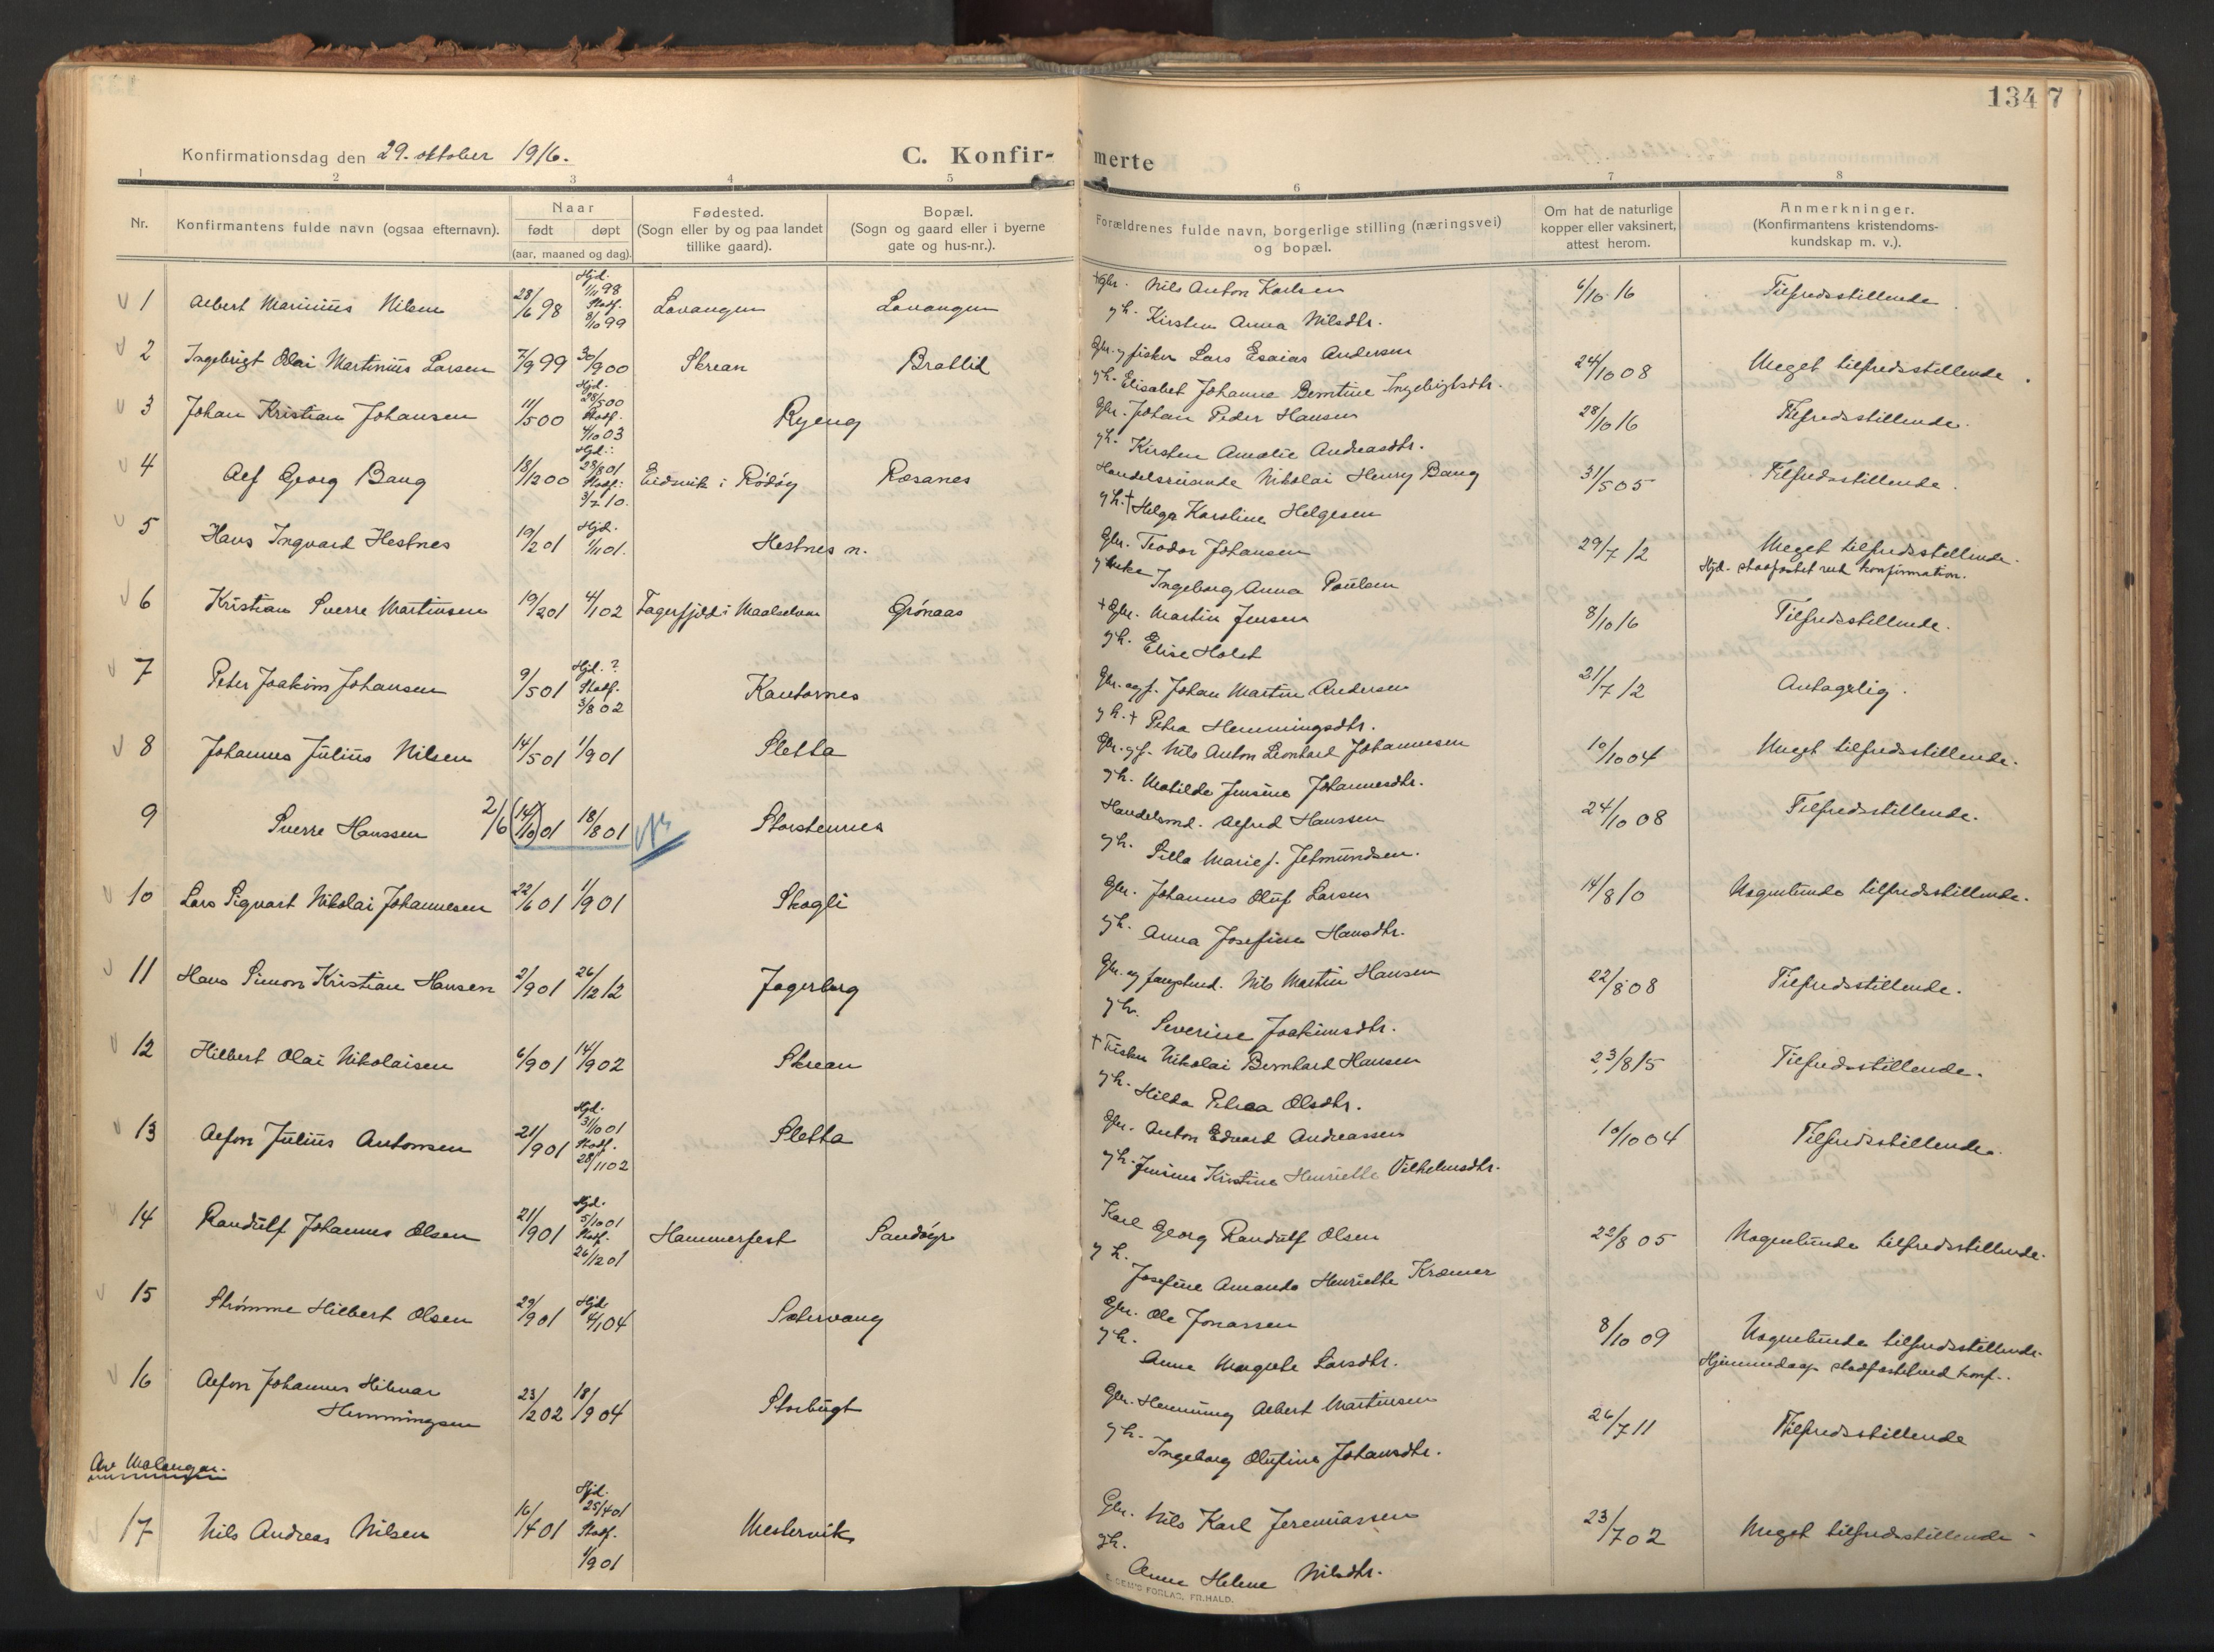 134 7
Konfirmationsdag den 29. oktober 1916.
C. Konfir-
merte
1 2 3 4 5 6 7 8
Nr.
Konfirmantens fulde navn (ogsaa efternavn).
Naar
født døpt
(aar, maaned og dag).
Fødested.
(Sogn eller by og paa landet
tillike gaard).
Bopæl.
(Sogn og gaard eller i byerne
gate og hus-nr.).
Forældrenes fulde navn, borgerlige stilling (næringsvei)
og bopæl.
Om hat de naturlige
kopper eller vaksinert,
attest herom.
Anmerkninger.
(Konfirmantens kristendoms-
kundskap m. v.).
1 Albert Marinius Nilsen 28/6 98 Hjd. 1/11 98 Stadf. 8/10 99 Lavangen Lavangen
+ Gbr. Nils Anton Karlsen 6/10 16 Tilfredsstillende
g h. Kirsten Anna Nilsdtr.
2 Ingebrigt Olai Martinius Larsen 7/9 99 30/9 00 Skrean Brattlid
Gbr. og fisker Lars Esaias Andersen 24/10 08 Meget tilfredsstillende.
g h. Elisabet Johanna Berntine Ingebrigtsdtr.
3 Johan Kristian Johansen 11/5 00 Hjd. 28/5 00 Stadf. 4/10 03 Ryeng
Gbr. Johan Peder Hansen 28/10 16 Tilfredsstillende.
g h. Kirsten Amalie Andreasdtr.
4 Alf Georg Bang 18/12 00 Hjd.: 28/8 01 Stadf.: 3/7 10. Eidsvik i Rødøy Rosanes
Handelsreisende Nikolai Henry Bang 31/5 05 Tilfredsstillende.
g h. + Helga Karoline Helgesen
5 Hans Ingvard Hestnes 19/2 01 Hjd. 1/11 01. Hestnes n.
Gbr. Teodor Johansen 29/7 12 Meget tilfredsstillende.
Hjd. stadfæstet ved konfirmation.
g Ingeborg Anna Paulsen
6 Kristian Sverre Martinsen 19/2 01 4/1 02 Fagerfjeld i Maalselven Grønaas
+ Gbr. Martin Jensen 8/10 16 Tilfredsstillende.
g h. Elise Holst
7 Peter Joakim Johansen 9/5 01 Hjd. ? Stadf. 3/8 02 Kantornes
Gbr. og f. Johan Martin Andersen 21/7 12 Antagelig.
g h. + Petra Hemmingsdtr.
8 Johannes Julius Nilsen 14/5 01 1/9 01 Sletta
Gbr. og f. Nils Anton Leonhard Johannesen 10/10 04 Meget tilfredsstillende.
g h. Matilde Jensine Johannesdtr.
9 Sverre Hanssen 2/6 (14/10) 01 18/8 01 Storstennes
Handelsmd. Alfred Hanssen 24/10 08 Tilfredsstillende.
g h. Silla Marie f. Jetmundsen.
10 Lars Sigvart Nikolai Johannesen 22/6 01 1/9 01 Skogli
Gbr. Johannes Oluf Larsen 14/8 10 Nogenlunde tilfredsstillende.
g h. Anna Josefine Hansdtr.
11 Hans Simon Kristian Hansen 2/9 01 26/12 12 Jagerberg
Gbr. og fangstmd. Nils Martin Hansen 22/8 08 Tilfredsstillende.
g h. Severine Joakimsdtr.
12 Hilbert Olai Nikolaisen 6/9 01 14/9 02 Skrean
+ Fisker Nikolai Bernhard Hansen 23/8 15 Tilfredsstillende.
g h. Hilda Petrea Olsdtr.
13 Alfon Julius Antonsen 21/9 01 Hjd. 31/10 01 Stadf. 28/11 02 Sletta
Gbr. Anton Edvard Andreassen 10/10 04 Tilfredsstillende.
g h. Jensine Kristine Henriette Vilhelmsdtr.
14 Randulf Johannes Olsen 21/9 01 Hjd. 5/10 01 Stadf. 26/12 01 Hammerfest Sandøyr
Karl Georg Randulf Olsen 22/8 05 Nogenlunde tilfredsstillende.
g h. Josefine Amanda Henriette Kræmer
15 Strømme Hilbert Olsen 29/9 01 Hjd. 4/1 04 Sætervang
Gbr. Ole Jonassen 8/10 09 Nogenlunde tilfredsstillende.
Hjemmedaap stadfæstet ved konf.
g h. Anne Margrete Larsdtr.
16 Alfon Johannes Hilmar
Hemmingsen 23/2 02 18/9 04 Storbugt
Gbr. Henning Albert Martinsen 26/7 11 Tilfredsstillende
g h. Ingeborg Olufine Johansdtr.
Av Malangen.
17 Nils Andreas Nilsen 16/4 01 Hjd. 25/4 01 Stadf. 1/9 01 Mestervik
Gbr. Nils Karl Jeremiassen 23/7 02 Meget tilfredsstillende
g h. Anne Helene Nilsdtr.
FORLAG, FR.HALD.